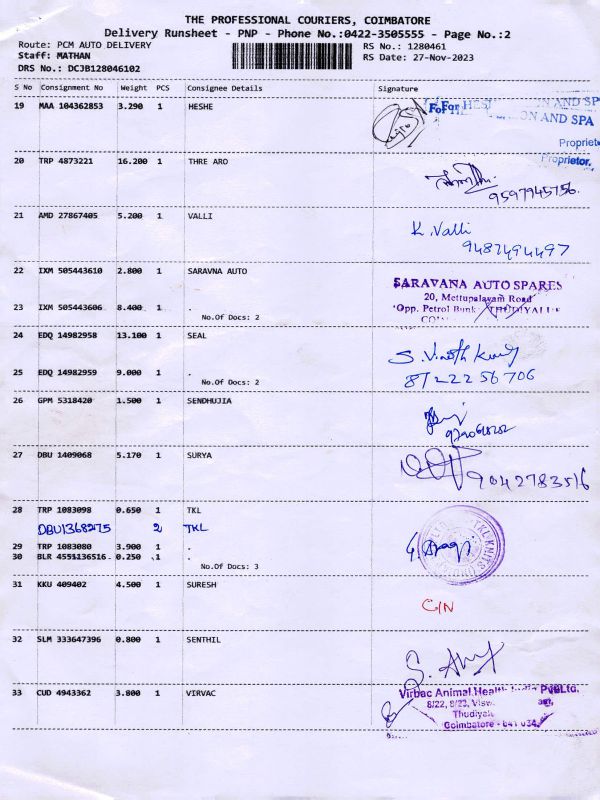 THE PROFESSIONAL COURIERS, COIMBATORE
Delivery Runsheet - PNP - Phone No.:0422-3505555 - Page No.:2
Route: PCM AUTO DELIVERY RS No.: 1280461
Staff: MATHAN RS Date: 27-Nov-2023
DRS No.: DCJB128046102
S No Consignment No Weight PCS Consignee Details Signature
19 MAA 104362853 3.290 1 HESHE
For HES ON AND SP
ON AND SPA
Propriet
Proprietor.
20 TRP 4873221 16.200 1 THRE ARO
9597945756
21 AMD 27867405 5.200 1 VALLI
K. Valli
9487494497
22 IXM 505443610 2.800 1 SARAVNA AUTO
SARAVANA AUTO SPARES
20, Mettupalayam Road
23 IXM 505443606 8.400 1 .
Opp. Petrol Bunk
No.Of Docs: 2
24 EDQ 14982958 13.100 1 SEAL
S. Vinoth Kumar
25 EDQ 14982959 9.000 1 .
8122256706
No.Of Docs: 2
26 GPM 5318420 1.500 1 SENDHUJIA
27 DBU 1409068 5.170 1 SURYA
9042783516
28 TRP 1083098 0.650 1 TKL
DBU13682175 2 TKL
29 TRP 1083080 3.900 1 .
30 BLR 4551136516 0.250 1 .
No.Of Docs: 3
31 KKU 409402 4.500 1 SURESH
C/N
32 SLM 333647396 0.800 1 SENTHIL
33 CUD 4943362 3.800 1 VIRVAC
Virbac Animal Health Pvt Ltd.
8/22, 8/23,
Thudiyal
Coimbatore - 641 034.